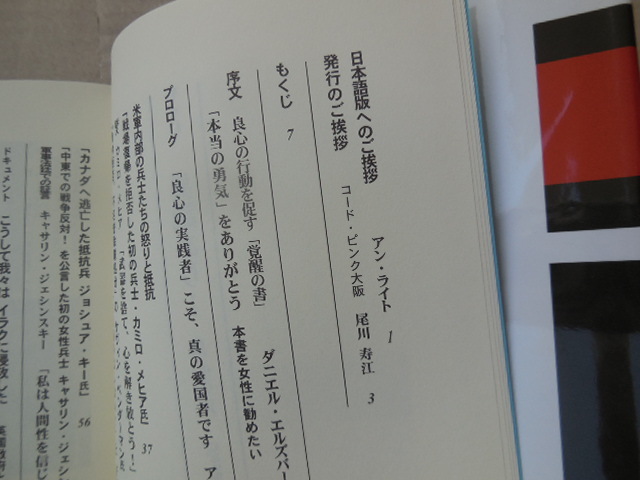 日本語版へのご挨拶 アン・ライト 1
発行のご挨拶 コード・ピンク大阪 尾川 寿江 3
もくじ 7
序文 良心の行動を促す「覚醒の書」 ダニエル・エルズバー
「本当の勇気」をありがとう 本書を女性に勧めたい
プロローグ 「良心の実践者」こそ、真の愛国者です ア
米軍内部の兵士たちの怒りと抵抗
「戦場復帰を拒否した初の兵士・カミロ・メヒア氏」 37
「武器を捨て、心を解き放とう!」
「カナダへ逃亡した抵抗兵 ジョシュア・キー氏」 56
「中東での戦争反対!を公言した初の女性兵士 キャサリン・ジェ
軍事法廷での証言 キャサリン・ジェシンスキー 「私は人間性を信じ
ドキュメント こうして我々は イラクに侵攻した」